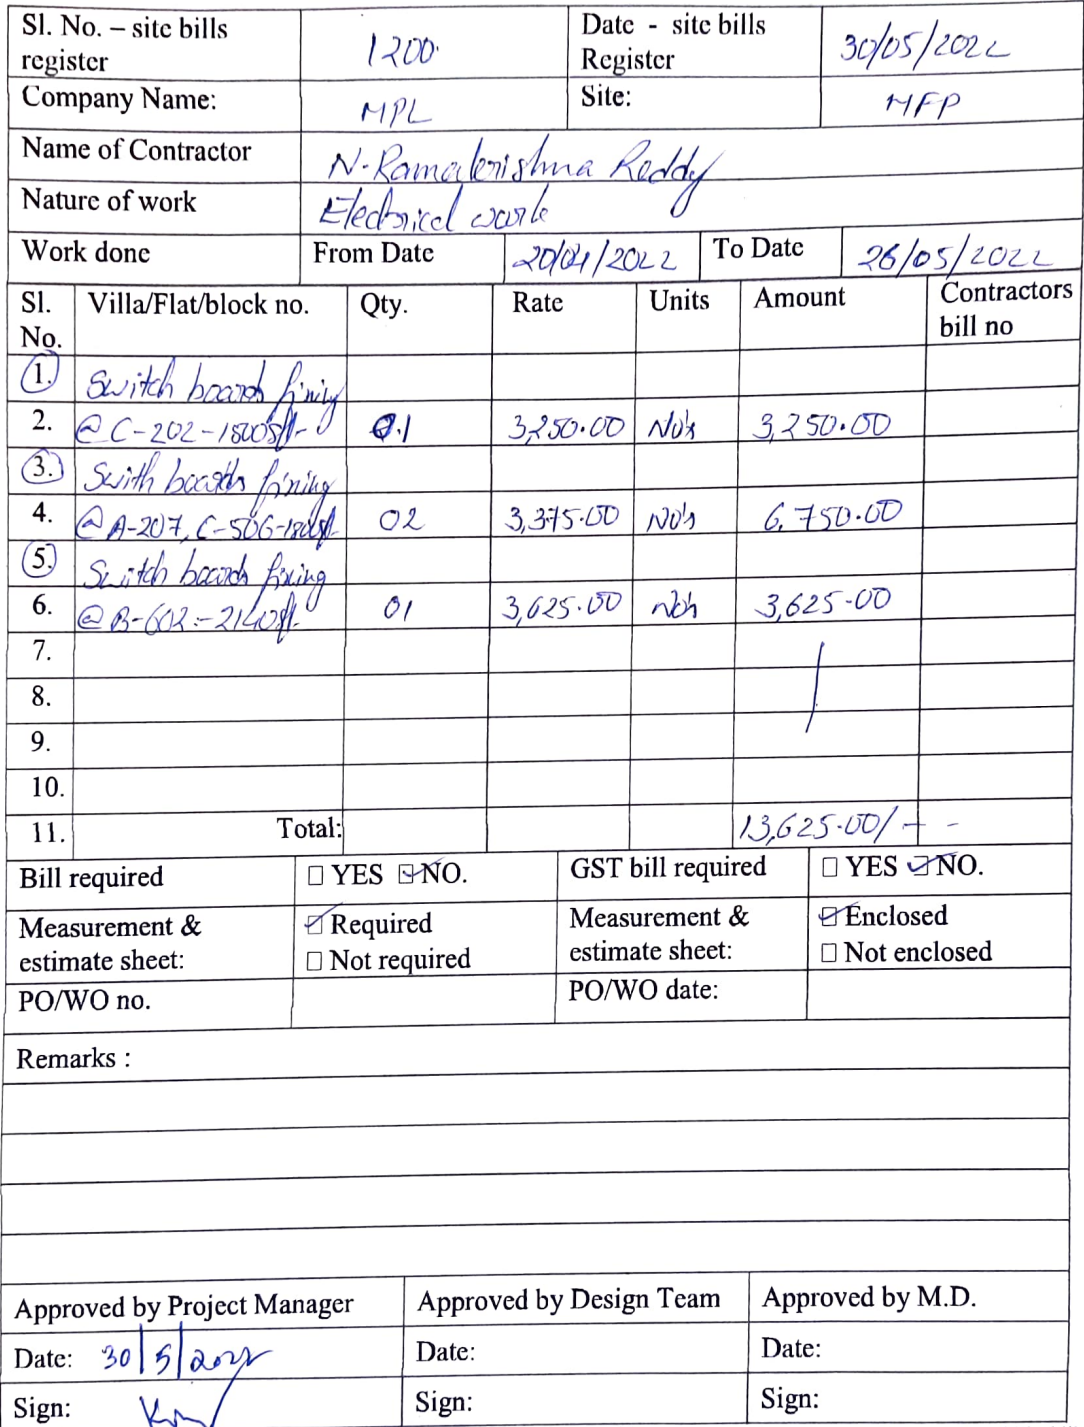 Sl. No. – site bills register 1200 Date - site bills Register 30/05/2022
Company Name: MPL Site: MFP
Name of Contractor N. Ramakrishna Reddy
Nature of work Electrical work
Work done From Date 20/04/2022 To Date 26/05/2022
Sl. No. Villa/Flat/block no. Qty. Rate Units Amount Contractors bill no
1. Switch boards fixing
2. @ C-202-1800sft- 01 3,250.00 No's 3,250.00
3. Swith boards fixing
4. @ A-207, C-506-1800sft- 02 3,375.00 No's 6,750.00
5. Switch boards fixing
6. @ B-602:-2140sft- 01 3,625.00 No's 3,625.00
7.
8.
9.
10.
11. Total: 13,625.00/-
Bill required YES NO. GST bill required YES NO.
Measurement & estimate sheet: Required Not required Measurement & estimate sheet: Enclosed Not enclosed
PO/WO no. PO/WO date:
Remarks :
Approved by Project Manager Approved by Design Team Approved by M.D.
Date: 30/5/2022 Date: Date:
Sign: Sign: Sign: